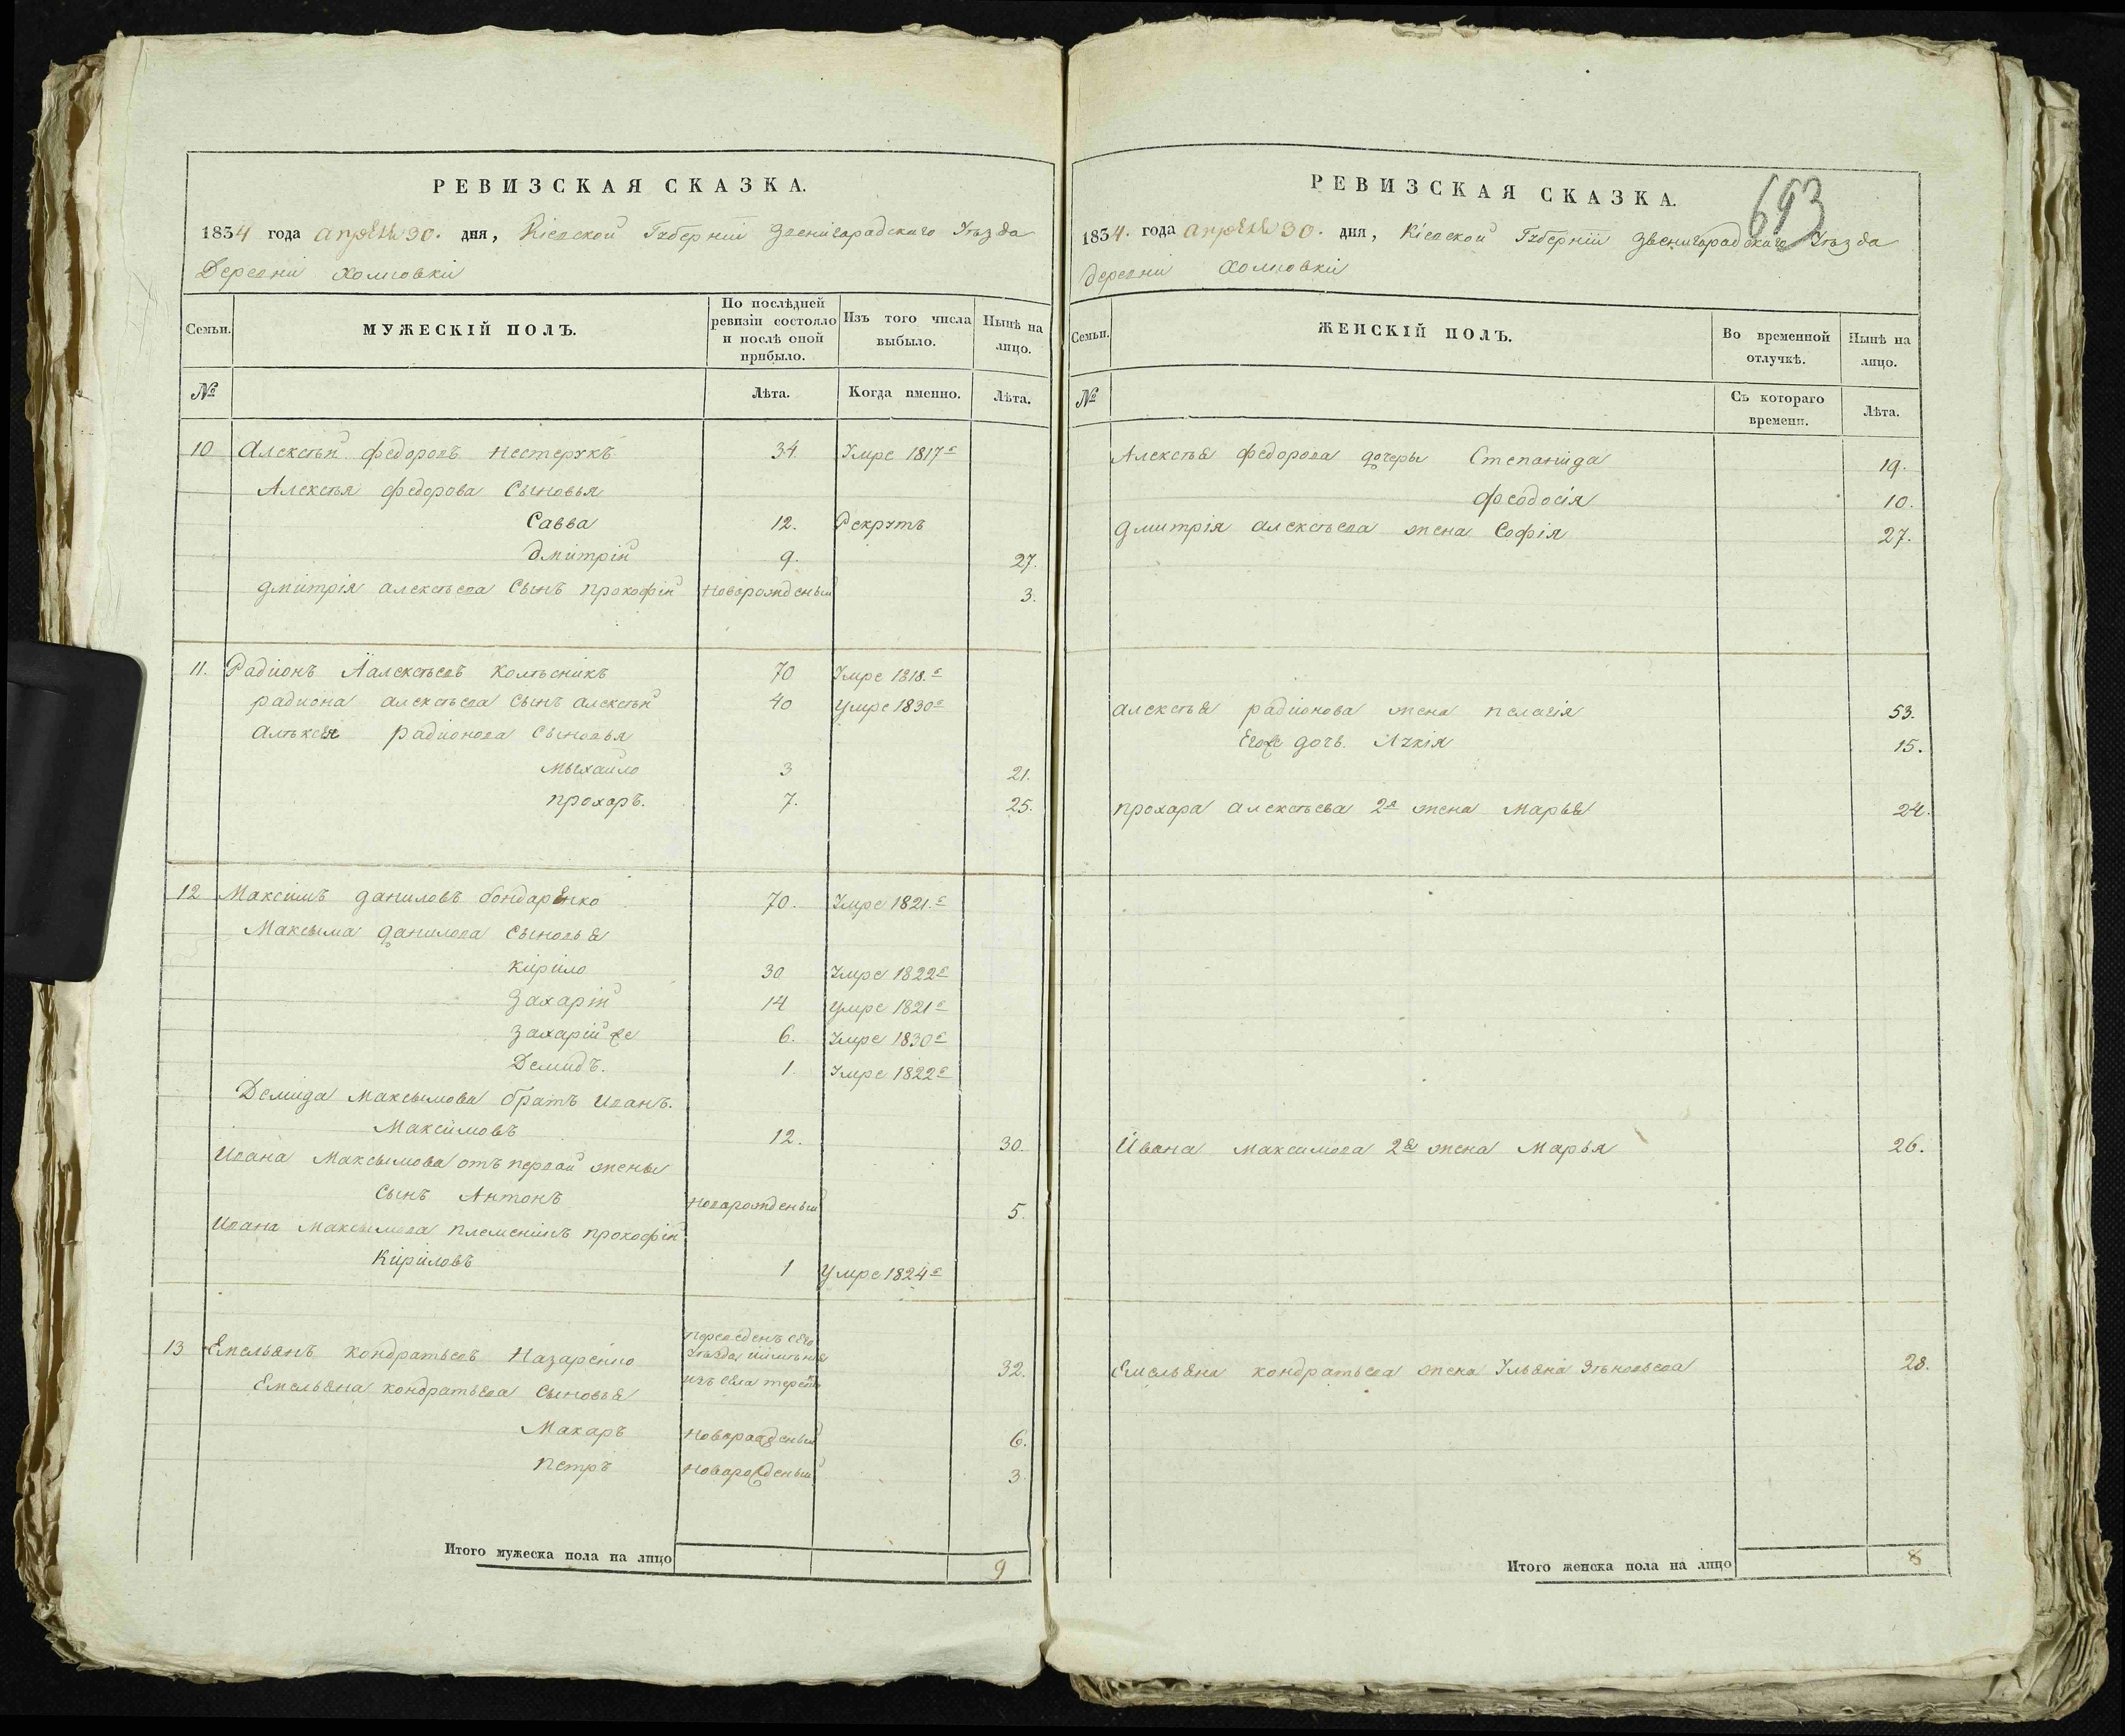 РЕВИЗСКАЯ СКАЗКА.
1834 года апреля 30. дня, Кіевской Губерніи Звенигарадскаго Уезда
Деревни Холмовки
Семьи.
МУЖЕСКІЙ ПОЛЪ.
По послѣдней ревизіи состояло и послѣ оной прибыло.
Изъ того числа выбыло.
Нынѣ на лицо.
№
Лѣта.
Когда именно.
Лѣта.
10 Алексѣй федоровъ нестерукъ 34 Умре 1817г
Алексѣя федорова Сыновья
Савва 12. Рекрутъ
дмитрій 9. 27.
дмитрія алексѣева Сынъ прокофій новорожденый 3.
11. Радионъ Аалексѣевъ колѣсникъ 70 Умре 1818.г
радиона алексѣева Сынъ алексѣй 40 умре 1830г
Алѣксея радионова Сыновья
мыхайло 3 21.
прохоръ. 7. 25.
12 Максимъ даниловъ бондаренко 70. Умре 1821.г
Максыма данилова Сыновья
кирило 30 Умре 1822г
Захарій 14 умре 1821г
Захарій же 6. Умре 1830г
Демидъ. 1. Умре 1822г
Демида Максымова братъ Иванъ.
Максимовъ 12. 30.
Ивана Максымова отъ первой жены
Сынъ Антонъ новарожденый 5.
Ивана Максымова племенникъ прокофій
Кириловъ 1 Умре 1824г
13 Емельянъ кондратьевъ Назаренко 32.
Емельяна кондратьева Сыновья
Макаръ новарожденый 6.
петръ новарожденый 3.
Итого мужеска пола на лицо 9
693
РЕВИЗСКАЯ СКАЗКА.
1834. года апреля 30. дня, Кіевской Губерніи Звенигарадскаго Уезда
деревни Холмовки
Семьи.
ЖЕНСКІЙ ПОЛЪ.
Во временной отлучкѣ.
Нынѣ на лицо.
№
Съ котораго времени.
Лѣта.
Алексѣя федорова дочеры Степанида 19.
феодосія 10.
дмитрія алексѣева жена Софія 27.
алексѣя радионова жена пелагія 53.
Егоже дочь. Лукія 15.
прохора алексѣева 2я жена Марья 24.
Ивана максимова 2я жена Марья 26.
Емельяна кондратьева жена Ульяна 28.
Итого женска пола на лицо 8